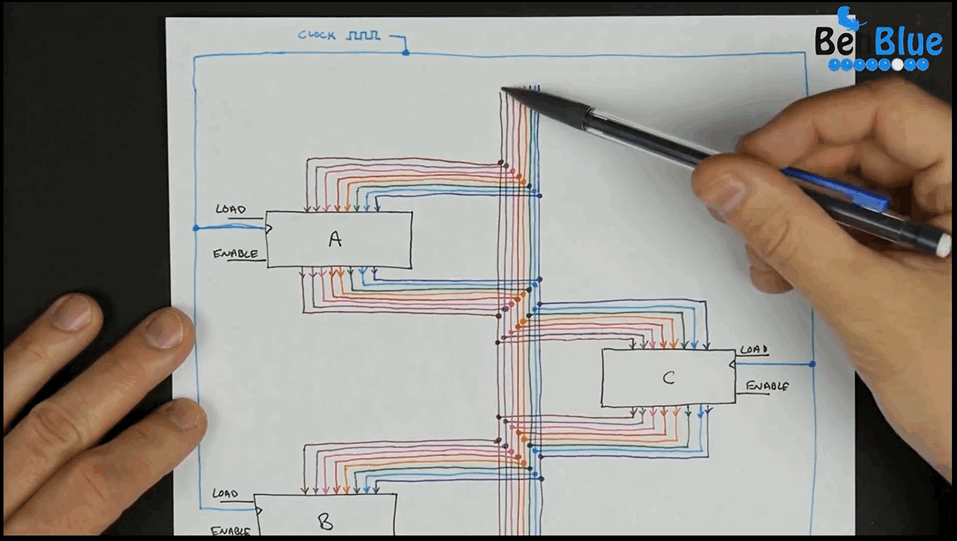 CLOCK
Ben Blue
LOAD
A
ENABLE
LOAD
C
ENABLE
LOAD
B
ENABLE